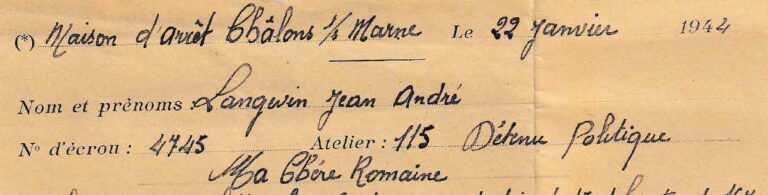 (*) Maison d'arrêt Châlons s/s Marne Le 22 Janvier 1942
Nom et prénoms : Langevin Jean André
N° d'écrou : 4745 Atelier : 115 Détenu Politique
Ma Chère Romaine